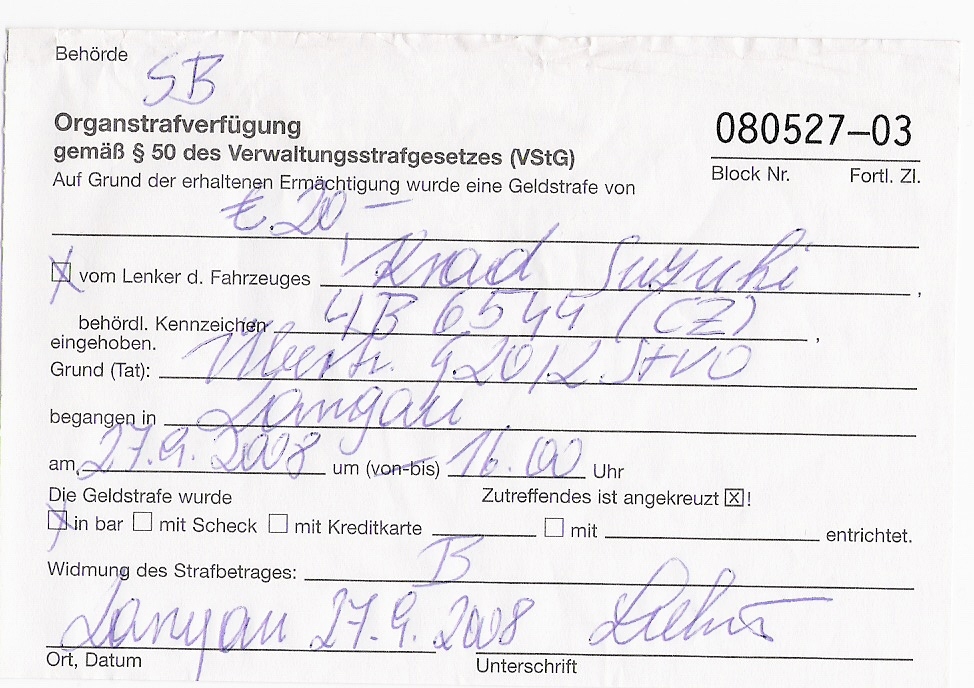 Behörde
SB
Organstrafverfügung
gemäß § 50 des Verwaltungsstrafgesetzes (VStG)
080527–03
Block Nr. Fortl. Zl.
Auf Grund der erhaltenen Ermächtigung wurde eine Geldstrafe von
€ 20 –
☒ vom Lenker d. Fahrzeuges Krad Suzuki ,
behördl. Kennzeichen 4B 6544 (CZ) ,
eingehoben.
Grund (Tat): §20/2 StVO
begangen in Langau
am 27.9.2008 um (von-bis) 16.00 Uhr
Die Geldstrafe wurde Zutreffendes ist angekreuzt ☒!
☒ in bar ☐ mit Scheck ☐ mit Kreditkarte ☐ mit entrichtet.
Widmung des Strafbetrages: B
Langau 27.9.2008
Ort, Datum Unterschrift